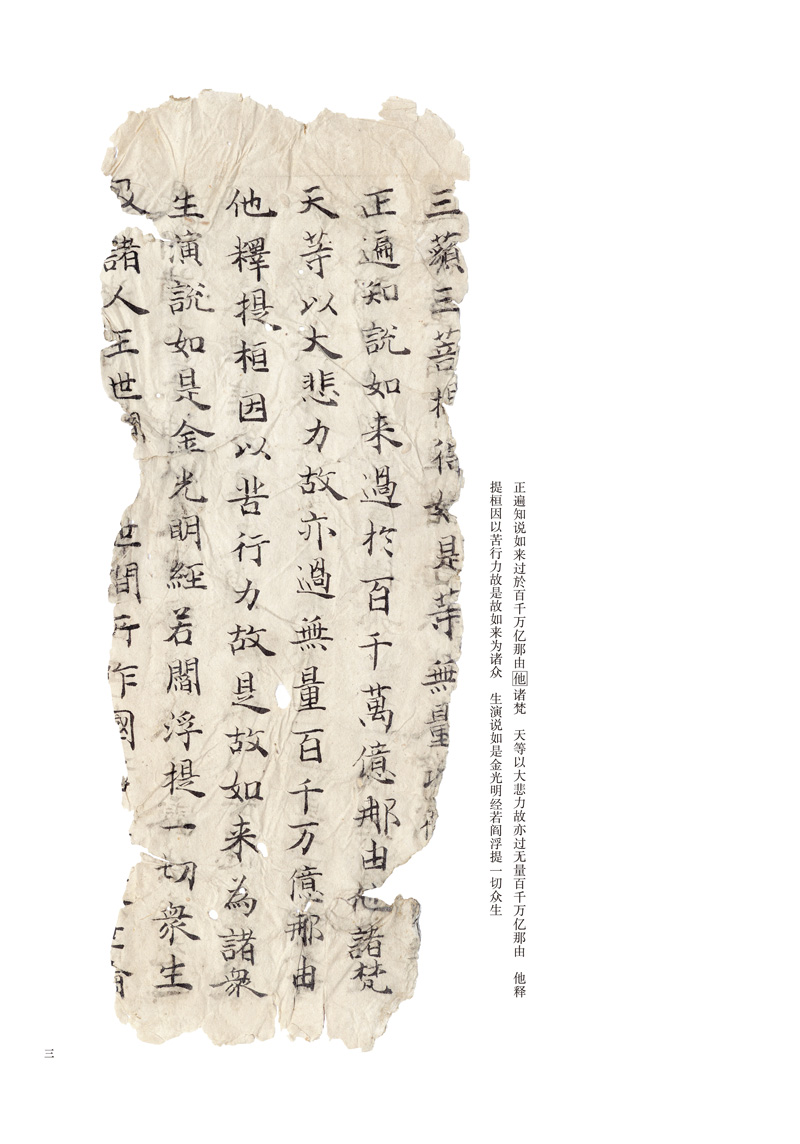 正遍知说如来过於百千万亿那由他诸梵　天等以大悲力故亦过无量百千万亿那由　他释
提桓因以苦行力故是故如来为诸众　生演说如是金光明经若阎浮提一切众生
三藐三菩提得如是等無量
正遍知説如来過於百千萬億那由他諸梵
天等以大悲力故亦過無量百千万億那由
他釋提桓因以苦行力故是故如来為諸衆
生演説如是金光明經若閻浮提一切衆生
及諸人王世間世間所作國
三